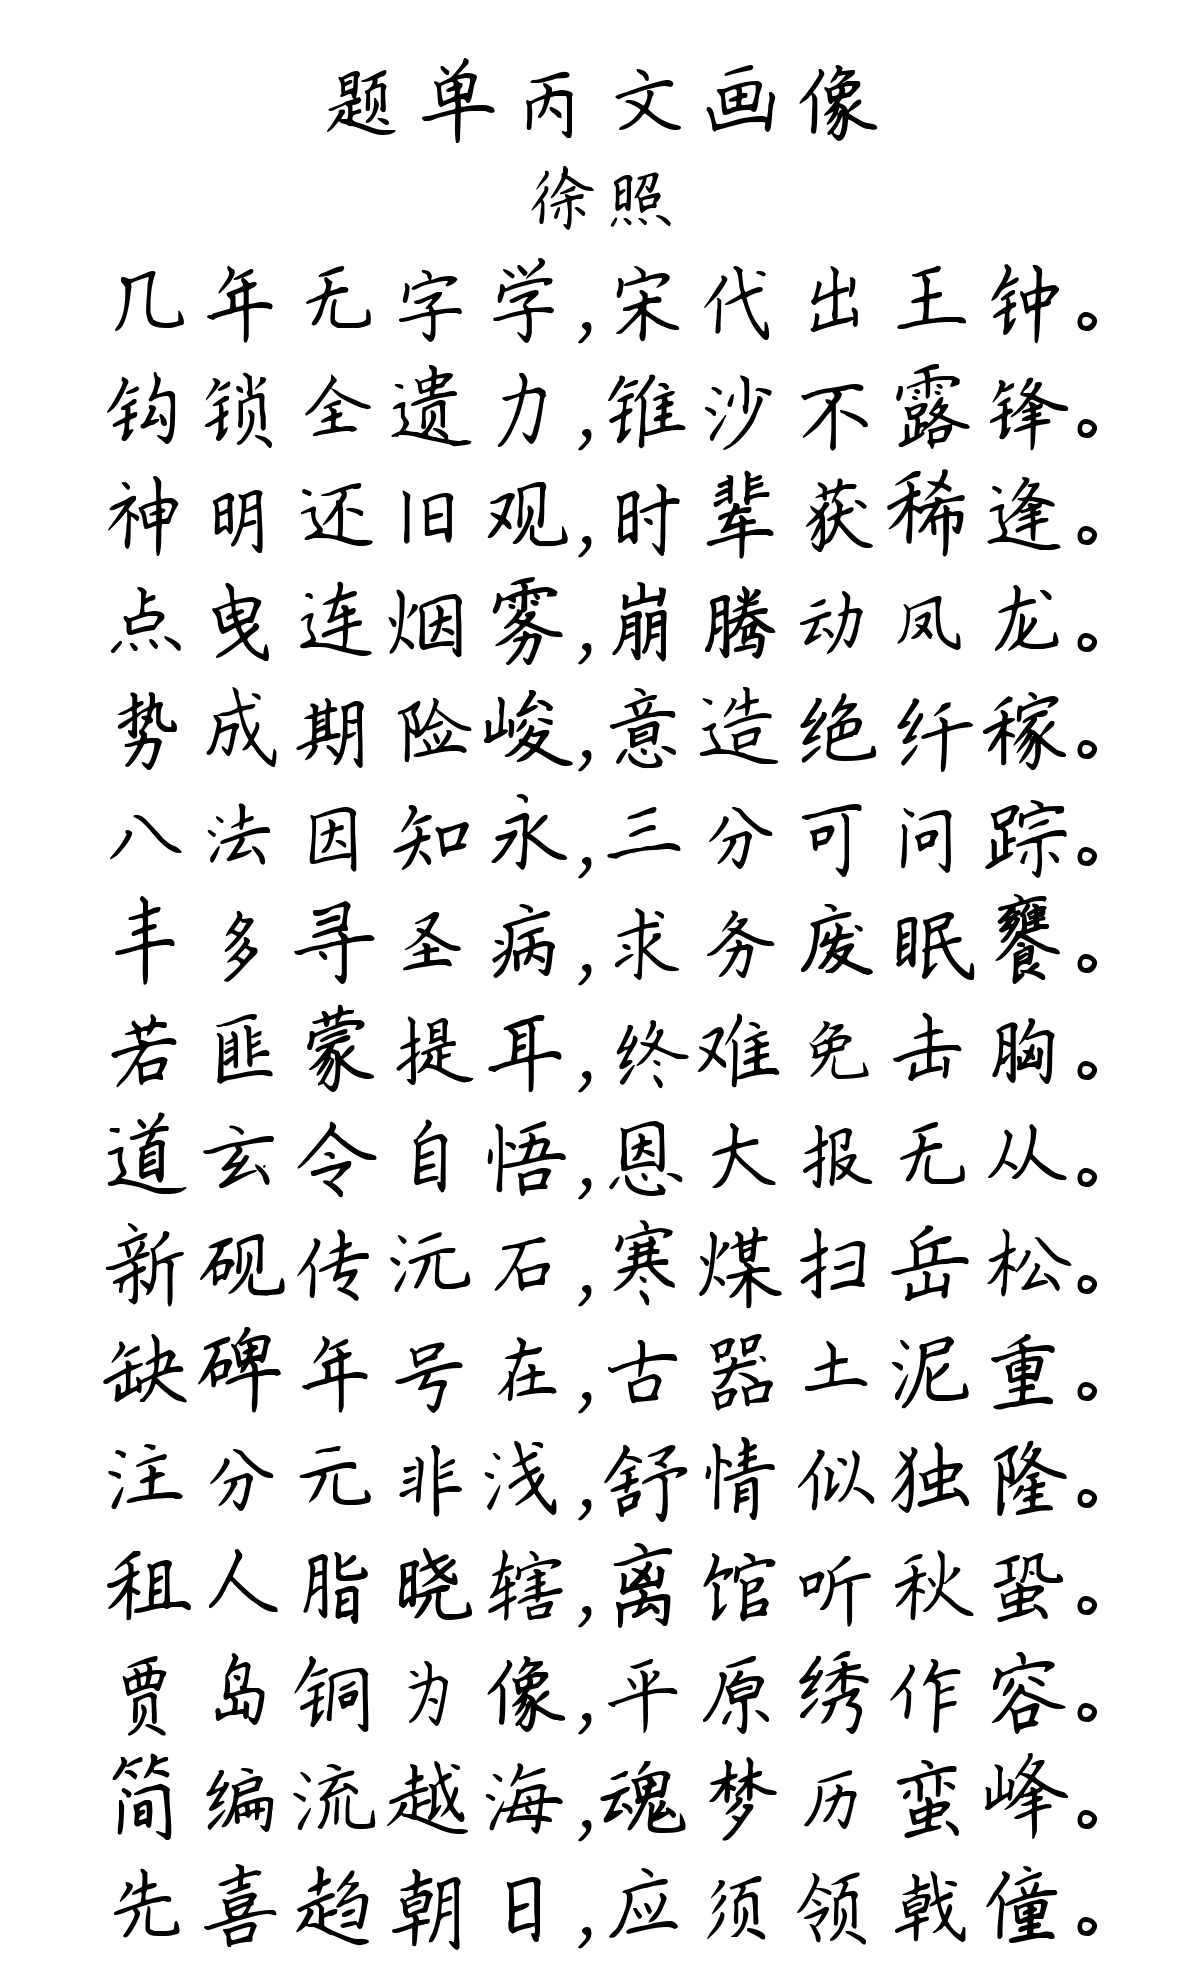 题单丙文画像
徐照
几年无字学,宋代出王钟。
钩锁全遗力,锥沙不露锋。
神明还旧观,时辈获稀逢。
点曳连烟雾,崩腾动凤龙。
势成期险峻,意造绝纤稼。
八法因知永,三分可问踪。
丰多寻圣病,求务废眠饔。
若匪蒙提耳,终难免击胸。
道玄令自悟,恩大报无从。
新砚传沅石,寒煤扫岳松。
缺碑年号在,古器土泥重。
注分元非浅,舒情似独隆。
租人脂晓辖,离馆听秋蛩。
贾岛铜为像,平原绣作容。
简编流越海,魂梦历蛮峰。
先喜趋朝日,应须领戟僮。